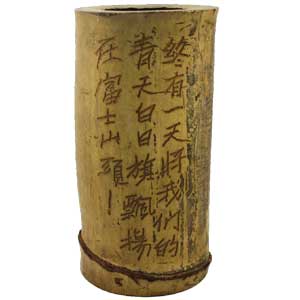 終有一天將我們的
青天白日旗飄揚
在富士山頭！